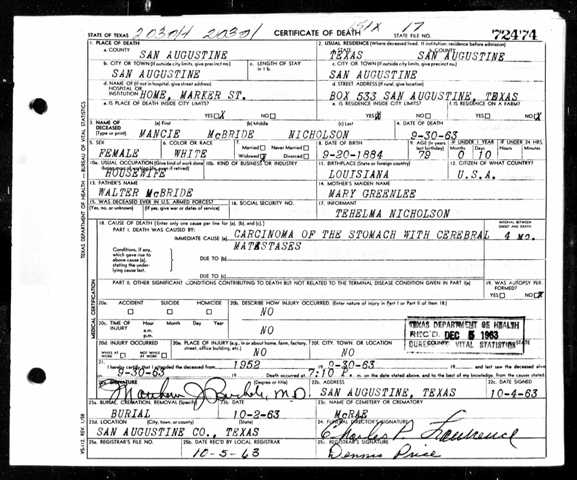 20304 20301 191X 17
STATE OF TEXAS CERTIFICATE OF DEATH STATE FILE NO. 72474
1. PLACE OF DEATH 2. USUAL RESIDENCE (Where deceased lived. If institution: residence before admission)
a. COUNTY a. STATE b. COUNTY
SAN AUGUSTINE TEXAS SAN AUGUSTINE
b. CITY OR TOWN (If outside city limits, give precinct no.) c. LENGTH OF STAY in 1 b. c. CITY OR TOWN (If outside city limits, give precinct no.)
SAN AUGUSTINE SAN AUGUSTINE
d. NAME OF (If not in hospital, give street address) d. STREET ADDRESS (If rural, give location)
HOSPITAL OR
INSTITUTION HOME, MARKER ST. BOX 533 SAN AUGUSTINE, TEXAS
e. IS PLACE OF DEATH INSIDE CITY LIMITS? e. IS RESIDENCE INSIDE CITY LIMITS? f. IS RESIDENCE ON A FARM?
YES X NO YES X NO YES NO X
3. NAME OF DECEASED (Type or print) (a) First (b) Middle (c) Last 4. DATE OF DEATH
MANCIE McBRIDE NICHOLSON 9-30-63
5. SEX 6. COLOR OR RACE 7. Married Never Married 8. DATE OF BIRTH 9. AGE (In years last birthday) IF UNDER 1 YEAR IF UNDER 24 HRS
Months Days Hours Minutes
FEMALE WHITE Widowed X Divorced 9-20-1884 79 0 10
10a. USUAL OCCUPATION (Give kind of work done 10b. KIND OF BUSINESS OR INDUSTRY 11. BIRTHPLACE (State or foreign country) 12. CITIZEN OF WHAT COUNTRY?
HOUSEWIFE LOUISIANA U.S.A.
13. FATHER'S NAME 14. MOTHER'S MAIDEN NAME
WALTER McBRIDE MARY GREENLEE
15. WAS DECEASED EVER IN U.S. ARMED FORCES? 16. SOCIAL SECURITY NO. 17. INFORMANT
(Yes, no, or unknown) (If yes, give war or dates of service)
TEHELMA NICHOLSON
18. CAUSE OF DEATH [Enter only one cause per line for (a), (b), and (c).] INTERVAL BETWEEN ONSET AND DEATH
PART I. DEATH WAS CAUSED BY:
IMMEDIATE CAUSE (a) CARCINOMA OF THE STOMACH WITH CEREBRAL 4 MO.
MATASTASES
Conditions, if any, which gave rise to above cause (a), stating the underlying cause last. DUE TO (b)
DUE TO (c)
PART II. OTHER SIGNIFICANT CONDITIONS CONTRIBUTING TO DEATH BUT NOT RELATED TO THE TERMINAL DISEASE CONDITION GIVEN IN PART I(a) 19. WAS AUTOPSY PERFORMED?
YES NO X
20a. ACCIDENT SUICIDE HOMICIDE 20b. DESCRIBE HOW INJURY OCCURRED. (Enter nature of injury in Part I or Part II of item 18)
NO
20c. TIME OF INJURY Hour Month Day Year
a.m.
p.m. NO
TEXAS DEPARTMENT OF HEALTH
REC'D DEC 5 1963
VITAL STATISTICS
20d. INJURY OCCURRED 20e. PLACE OF INJURY (e.g., in or about home, farm, factory, street, office building, etc.) 20f. CITY, TOWN, OR LOCATION COUNTY STATE
WHILE AT WORK NOT WHILE AT WORK NO NO
21. I hereby certify that I attended the deceased from 1952 9-30-63 and last saw the deceased alive
9-30-63 Death occurred at 7:10 P.m. on the date stated above, and to the best of my knowledge, from the causes stated.
22a. SIGNATURE (Degree or title) 22b. ADDRESS 22c. DATE SIGNED
M.D. SAN AUGUSTINE, TEXAS 10-4-63
23a. BURIAL, CREMATION, REMOVAL (Specify) 23b. DATE 23c. NAME OF CEMETERY OR CREMATORY
BURIAL 10-2-63 McRAE
23d. LOCATION (City, town, or county) (State) 24. FUNERAL DIRECTOR'S SIGNATURE
SAN AUGUSTINE CO., TEXAS Charles P.
25a. REGISTRAR'S FILE NO. 25b. DATE REC'D BY LOCAL REGISTRAR 25c. REGISTRAR'S SIGNATURE
10-5-63 Dennis Price
TEXAS DEPARTMENT OF HEALTH — BUREAU OF VITAL STATISTICS
MEDICAL CERTIFICATION